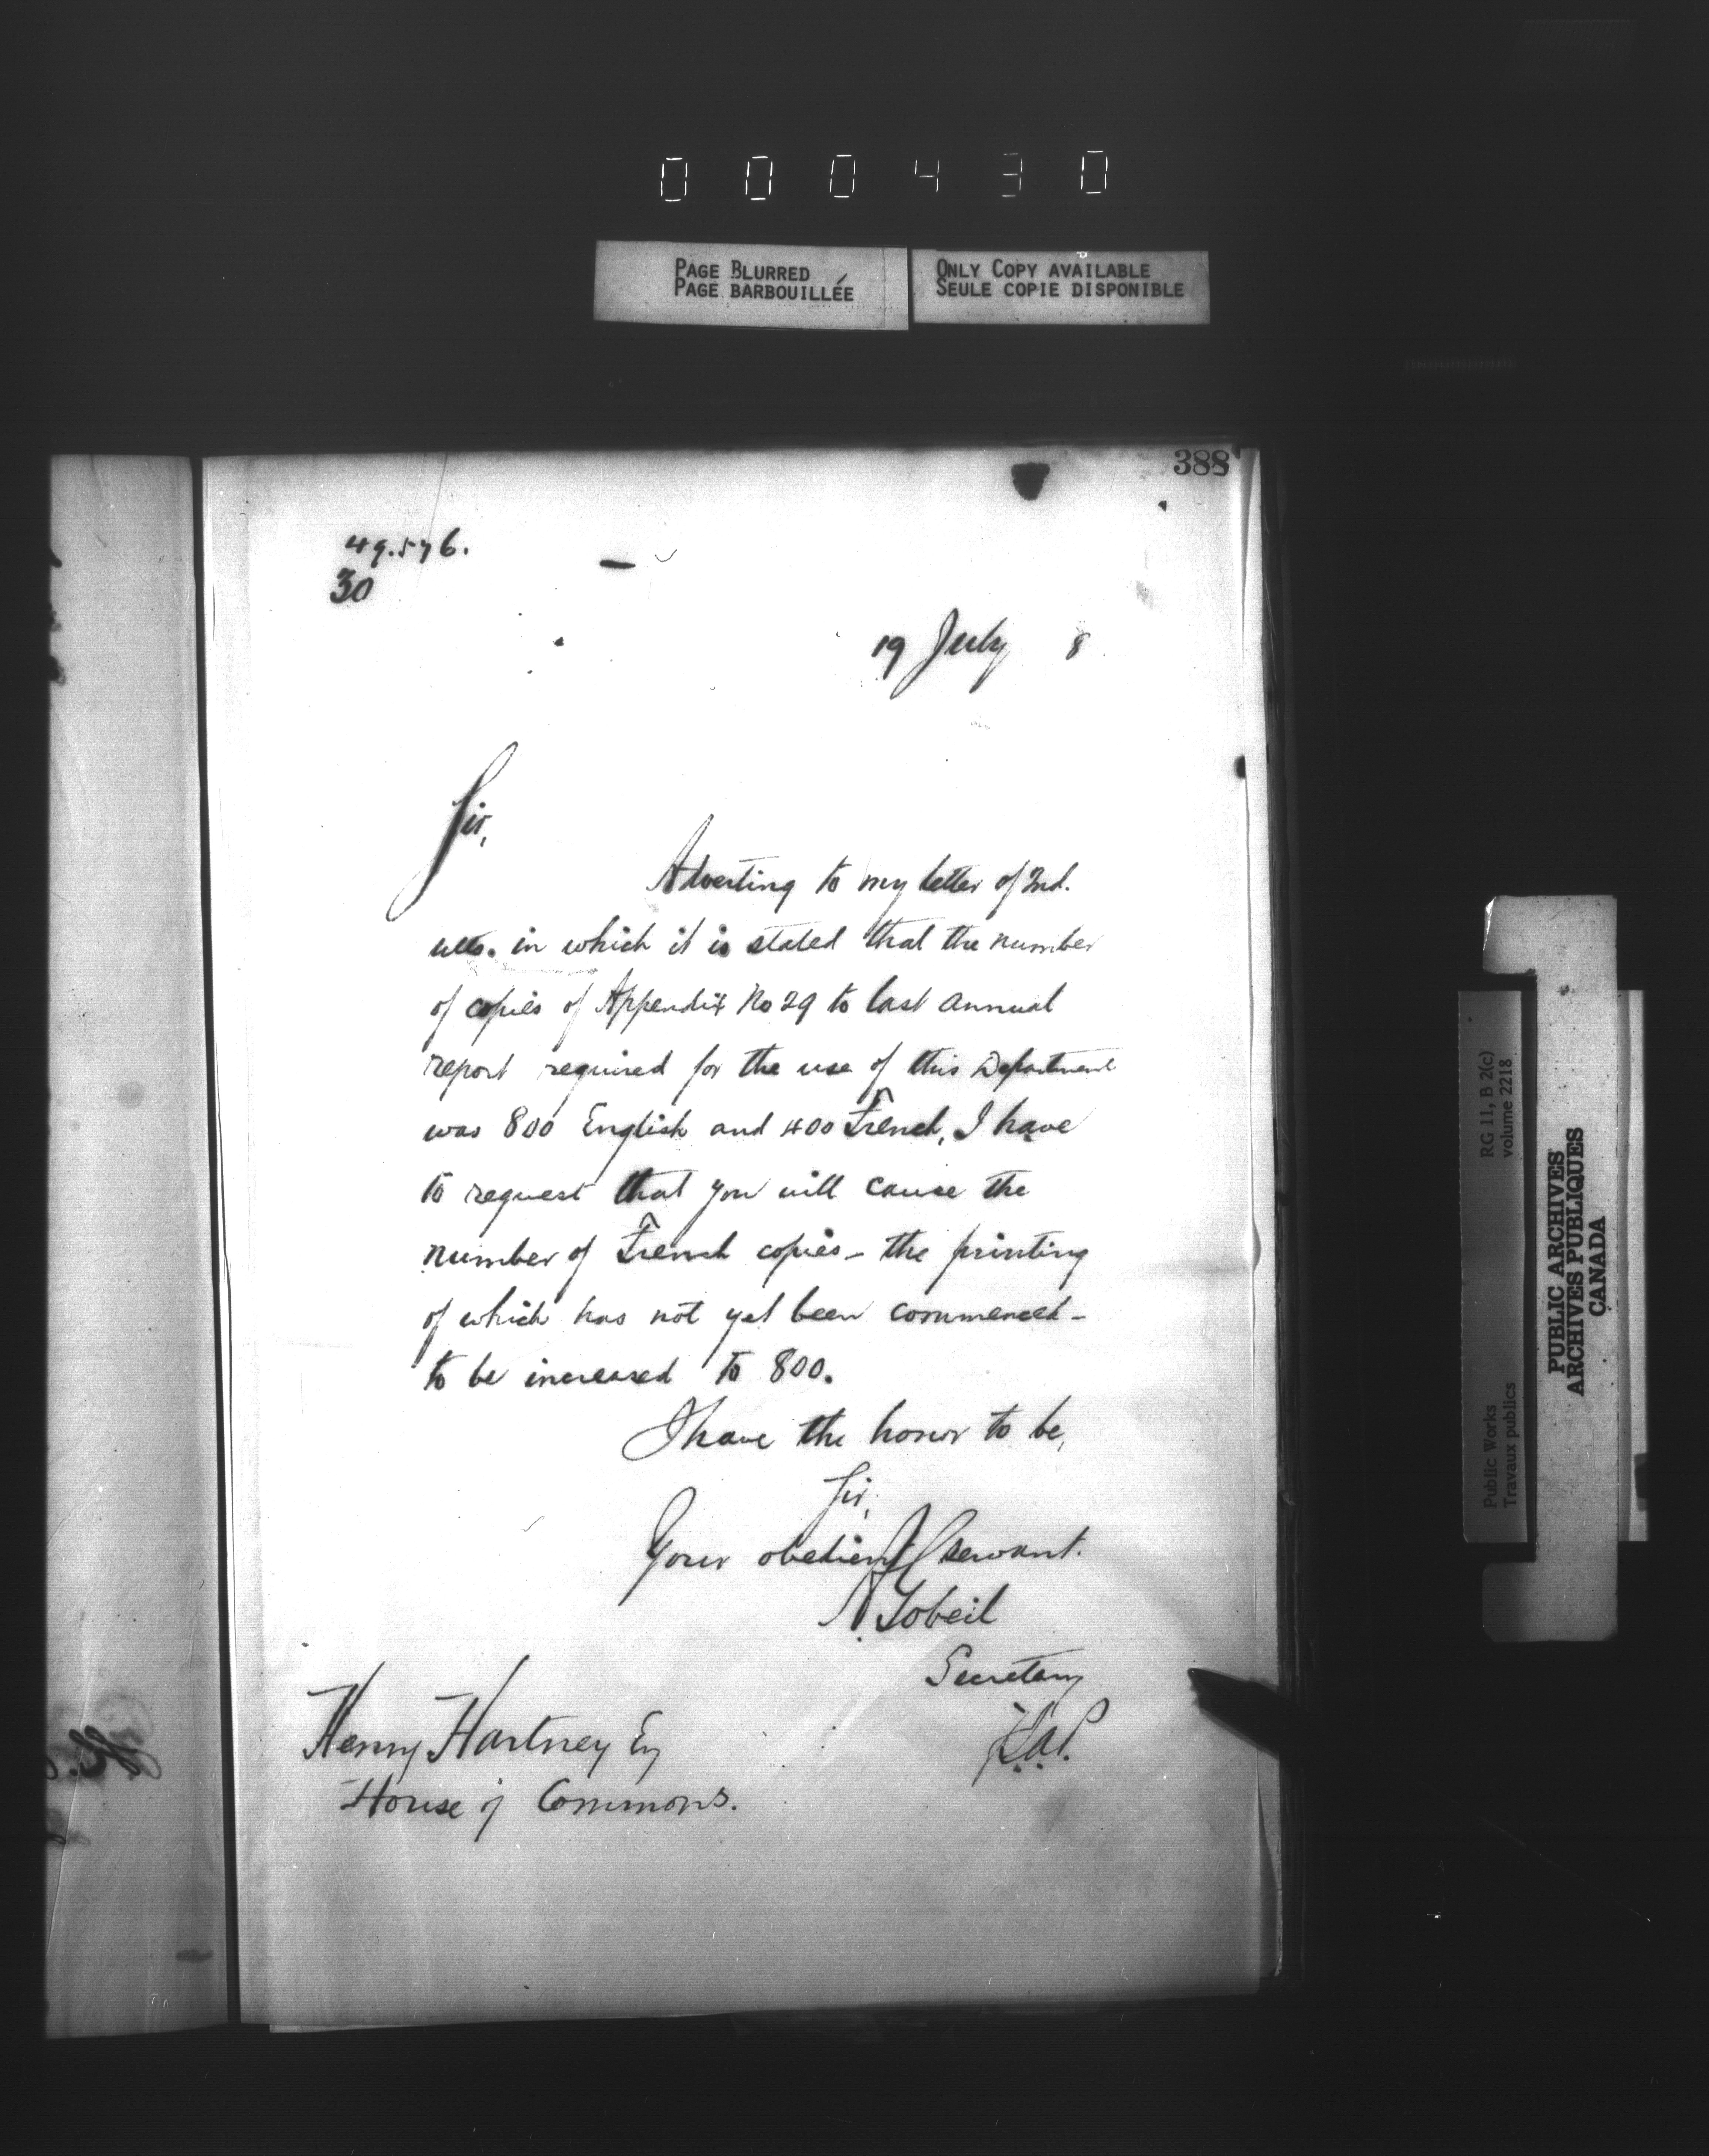 000430
PAGE BLURRED
PAGE BARBOUILLÉE
ONLY COPY AVAILABLE
SEULE COPIE DISPONIBLE
388
49.576.
30
19 July 8
Sir,
Adverting to my letter of 2nd.
ulto. in which it is stated that the number
of copies of Appendix No 29 to last annual
report required for the use of this Department
was 800 English and 400 French, I have
to request that you will cause the
number of French copies - the printing
of which has not yet been commenced -
to be increased to 800.
I have the honor to be,
Sir,
Your obedient servant.
A. Gobeil
Secretary
Henry Hartney Esq
House of Commons.
RG 11, B 2(c)
volume 2218
Public Works
Travaux publics
PUBLIC ARCHIVES
ARCHIVES PUBLIQUES
CANADA